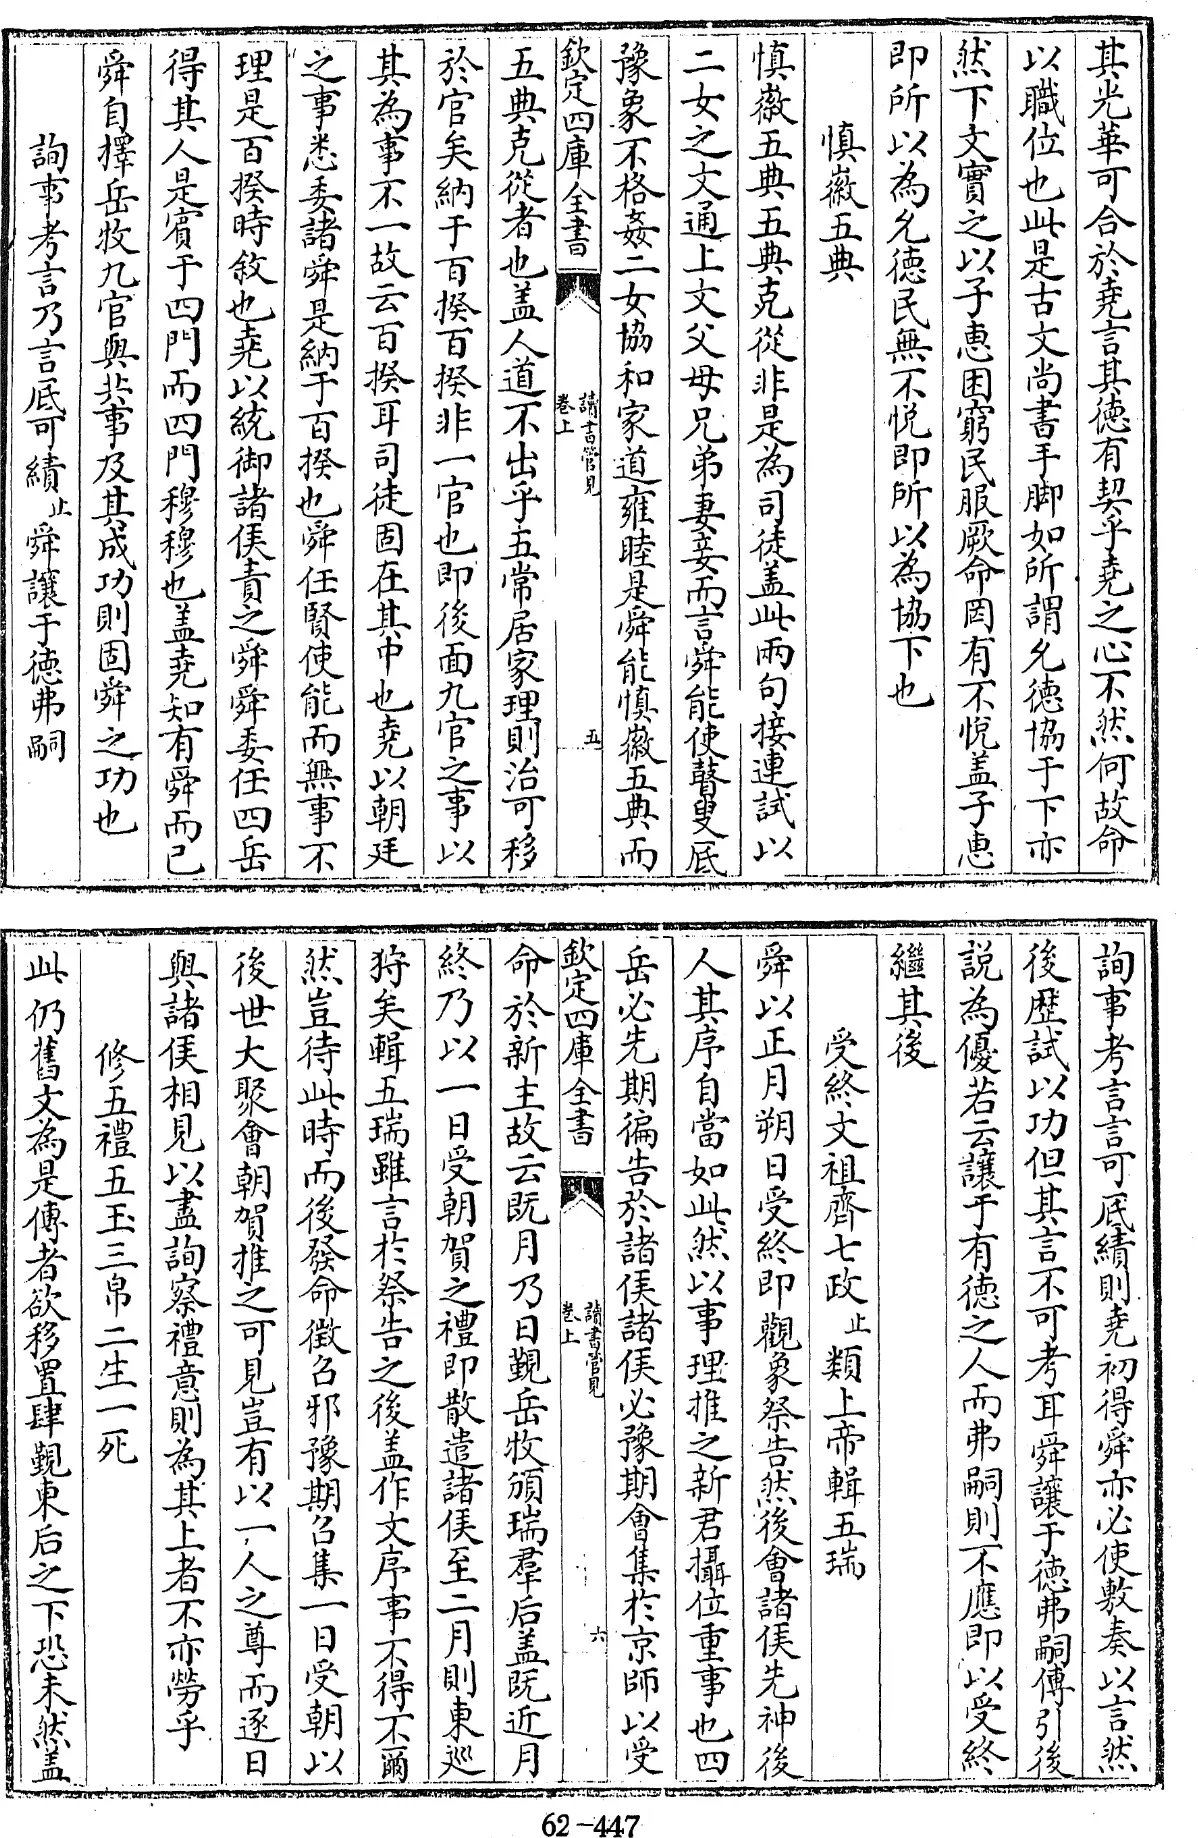 其光華可合於堯言其徳有契乎堯之心不然何故命
以職位也此是古文尚書手脚如所謂允徳協于下亦
然下文實之以子惠困窮民服厥命罔有不悦盖子惠
即所以為允徳民無不悦即所以為協下也
慎徽五典
慎徽五典五典克從非是為司徒盖此兩句接連試以
二女之文通上文父母兄弟妻妾而言舜能使瞽叟厎
豫象不格姦二女協和家道雍睦是舜能慎徽五典而
欽定四庫全書
讀書管見
卷上
五
五典克從者也盖人道不出乎五常居家理則治可移
於官矣納于百揆百揆非一官也即後面九官之事以
其為事不一故云百揆耳司徒固在其中也堯以朝廷
之事悉委諸舜是納于百揆也舜任賢使能而無事不
理是百揆時敘也堯以統御諸侯責之舜舜委任四岳
得其人是賓于四門而四門穆穆也盖堯知有舜而已
舜自擇岳牧九官與共事及其成功則固舜之功也
詢事考言乃言厎可績止舜讓于徳弗嗣
詢事考言言可厎績則堯初得舜亦必使敷奏以言然
後歴試以功但其言不可考耳舜讓于徳弗嗣傳引後
説為優若云讓于有徳之人而弗嗣則不應即以受終
繼其後
受終文祖齊七政止類上帝輯五瑞
舜以正月朔日受終即觀象祭告然後會諸侯先神後
人其序自當如此然以事理推之新君攝位重事也四
岳必先期徧告於諸侯諸侯必豫期會集於京師以受
欽定四庫全書
讀書管見
卷上
六
命於新主故云既月乃日覲岳牧頒瑞羣后盖既近月
終乃以一日受朝賀之禮即散遣諸侯至二月則東巡
狩矣輯五瑞雖言於祭告之後盖作文序事不得不爾
然豈待此時而後發命徴召邪豫期召集一日受朝以
後世大聚會朝賀推之可見豈有以一人之尊而逐日
與諸侯相見以盡詢察禮意則為其上者不亦勞乎
修五禮五玉三帛二生一死
此仍舊文為是傳者欲移置肆覲東后之下恐未然盖
62-447